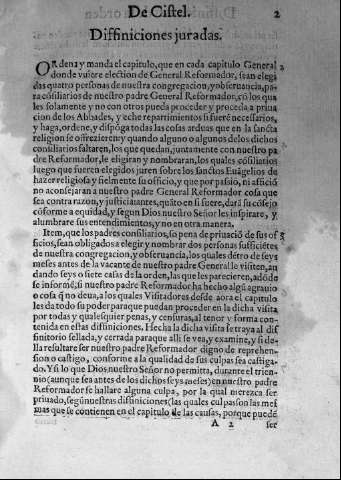 De Cistel.
2
Diffiniciones juradas.
ORdena y manda el capitulo, que en cada capitulo General
donde vuiere election de General Reformador, sean elegi
das quatro personas de nuestra congregacion, y obseruancia, pa-
ra cõsiliarios de nuestro padre General Reformador, cõ los qua
les solamente y no con otros pueda proceder y proceda a priua
cion de los Abbades, y eche repartimiẽtos si fuerẽ necessarios,
y haga, ordene, y dispõga todas las cosas arduas que en la sancta
religion se ofrezieren: y quando alguno o algunos delos dichos
cõsiliarios faltaren, los que quedan, juntamente con nuestro pa
dre Reformador, le eligiran y nombraran, los quales cõsiliarios
luego que fueren elegidos juren sobre los sanctos Euãgelios de
hazer religiosa y fielmente su officio, y que por passiõ, ni afficiõ
no aconsejaran a nuestro padre General Reformador cosa que
sea contra razon, y justicia: antes, quãto en si fuere, darã su cõsejo
cõforme a equidad, y segun Dios nuestro Señor les inspirare, y
alumbrare sus entendimientos, y no en otra manera.
Item, que los padres consiliarios, so pena de priuaciõ de sus of
ficios, sean obligados a elegir y nombrar dos personas sufficiẽtes
de nuestra congregacion, y obseruancia, los quales dẽtro de seys
meses antes de la vacante de nuestro padre General le visiten, an
dando seys o siete casas de la orden, las que les parecieren, adõde
se informẽ, si nuestro padre Reformador ha hecho algũ agrauio
o cosa q̃ no deua, a los quales Visitadores desde aora el capitulo
les da todo su poder para que puedan proceder en la dicha visita
por todas y qualesquier penas, y censuras, al tenor y forma con-
tenida en estas diffiniciones. Hecha la dicha visita se trayga al dif
finitorio sellada, y cerrada para que alli se vea, y examine, y si de-
lla resultare ser nuestro padre Reformador digno de reprehen-
sion o castigo, conforme a la qualidad de sus culpas sea castiga-
do. Y si lo que Dios nuestro Señor no permitta, durante el trien-
nio (aunque sea antes de los dichos seys meses) en nuestro padre
Reformador se hallare alguna culpa, por la qual merezca ser
priuado, segũ nuestras diffiniciones (las quales culpas son las mes
mas que se contienen en el capitulo de las causas, porque pueden
A 2
ser